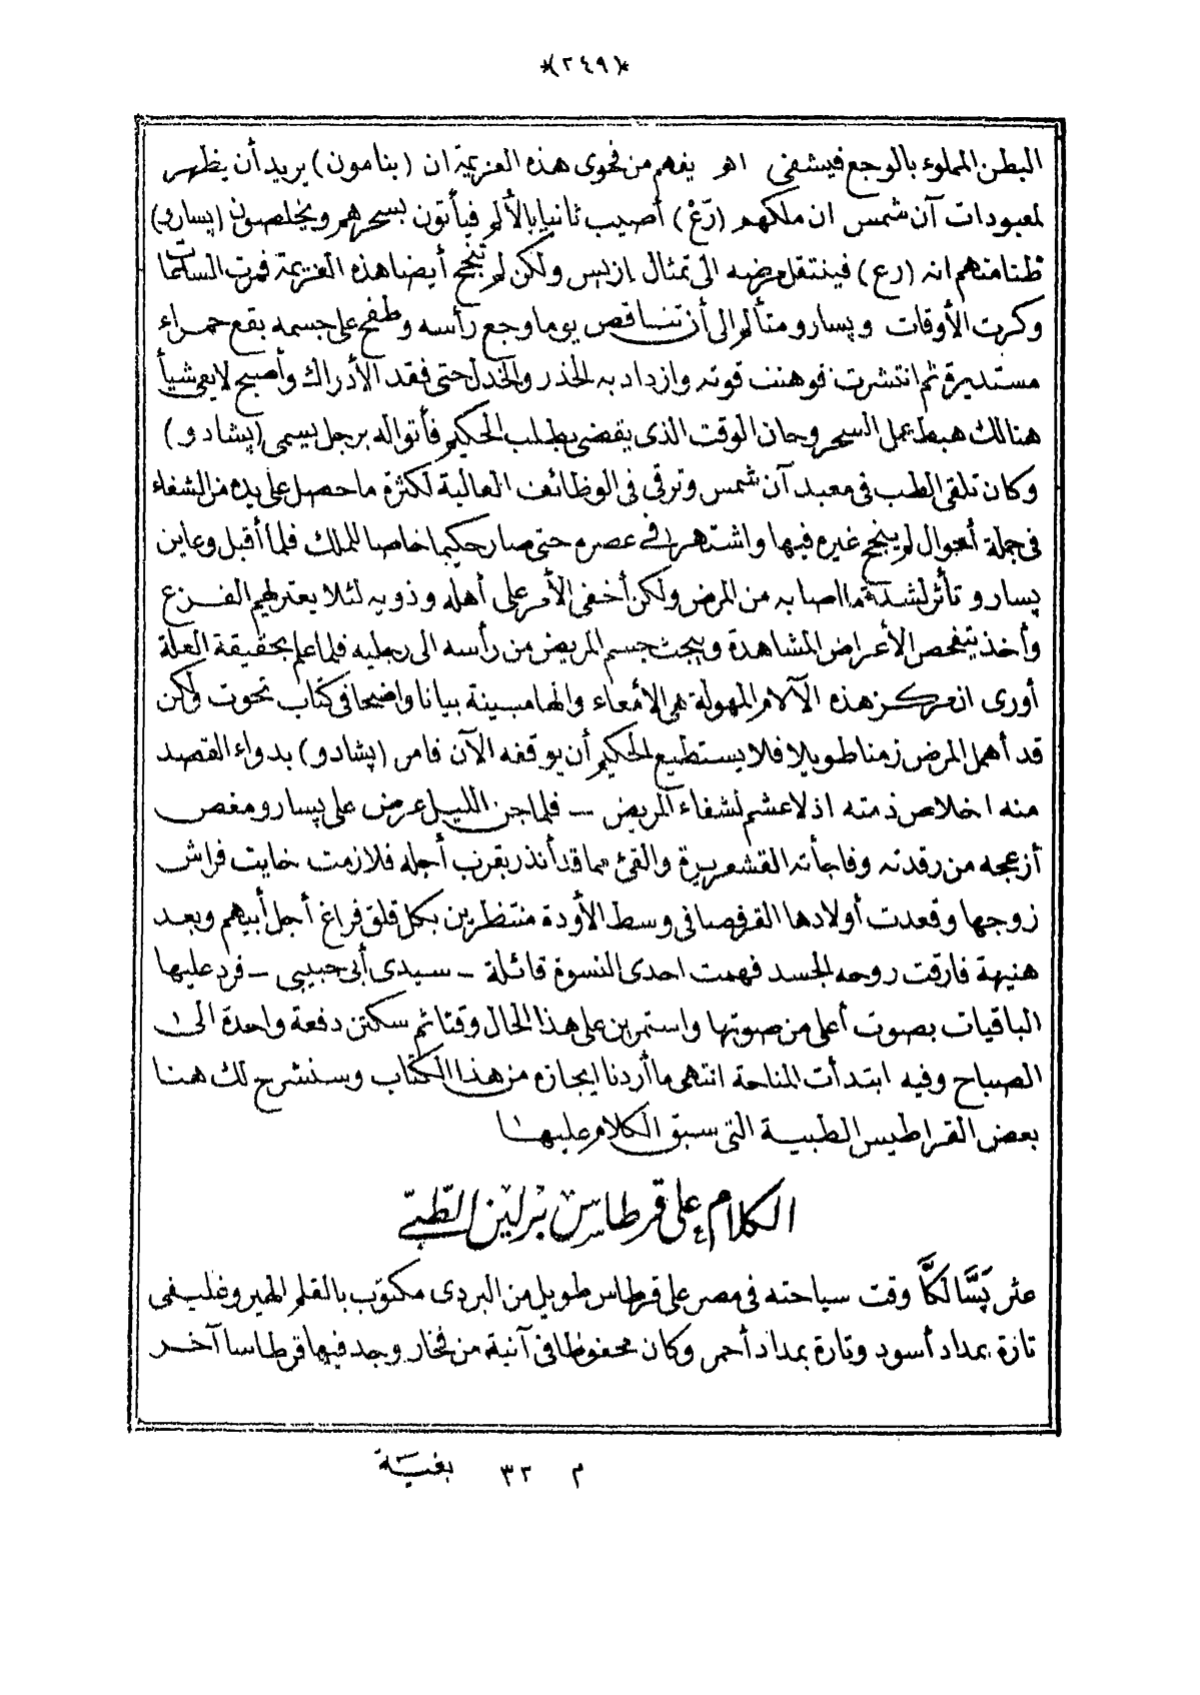 *(٢٤٩)*
البطن المملوء بالوجع فيشفى اهـ يفهم من فحوى هذه العزيمة ان (بنامون) يريد أن يظهر
لمعبودات آن شمس ان ملكهم (رَعْ) أصيب ثانيا بالألم فيأتون بسحرهم ويخلصون (پسارو)
ظنا منهم انه (رع) فينتقل مرضه الى تمثال إزيس ولكن لم تنجح أيضا هذه العزيمة فمرت الساعات
وكرت الأوقات وپسارو متألم الى أن تناقص يوما وجع رأسه وطفح على جسمه بقع حمراء
مستديرة ثم انتشرت فوهنت قوته وازداد به الخدر والخدل حتى فقد الأدراك وأصبح لا يعى شيأ
هنالك هبط عمل السحر وحان الوقت الذى يقضى بطلب الحكيم فأتوا له برجل يسمى (پشادو)
وكان تلقى الطب فى معبد آن شمس وترقى فى الوظائف العالية لكثرة ما حصل على يده من الشفاء
فى جملة أحوال لم ينجح غيره فيها واشتهر فى عصره حتى صار حكيما خاصا للملك فلما أقبل وعاين
پسارو تأثر لشدة ما اصابه من المرض ولكن أخفى الأمر على أهله وذويه لئلا يعتريهم الفزع
وأخذ يتفحص الأعراض المشاهدة ويبحث جسم المريض من رأسه الى رجليه فلما علم بحقيقة العلة
أورى ان مركز هذه الآلام المهولة هى الامعاء وانها مبينة بيانا واضحا فى كتاب تحوت ولكن
قد أهمل المرض زمنا طويلا فلا يستطيع الحكيم أن يوقفه الآن فامر (پشادو) بدواء القصد
منه اخلاص ذمته اذ لا عشم لشفاء المريض – فلما جن الليل عرض على پسارو مغص
أزعجه من رقدته وفاجأته القشعريرة والقئ مما قد أنذر بقرب أجله فلازمت خايت فراش
زوجها وقعدت أولادها القرفصا فى وسط الأودة منتظرين بكل قلق فراغ أجل أبيهم وبعد
هنيهة فارقت روحه الجسد فهمت احدى النسوة قائلة – سيدى أبى حبيبى – فرد عليها
الباقيات بصوت أعلى من صوتها واستمرين على هذا الحال وقتا ثم سكتن دفعة واحدة الى
الصباح وفيه ابتدأت المناحة انتهى ما أردنا ايجازه من هذا الكتاب وسنشرح لك هنا
بعض القراطيس الطبية التى سبق الكلام عليها
الكلام على قرطاس برلين الطبى
عثر پَسَّالَكَّا وقت سياحته فى مصر على قرطاس طويل من البردى مكتوب بالقلم الهيروغليفى
تارة بمداد أسود وتارة بمداد أحمر وكان محفوظا فى آنية من فخار وجد فيها قرطاسا آخر
م ٣٢ بغية